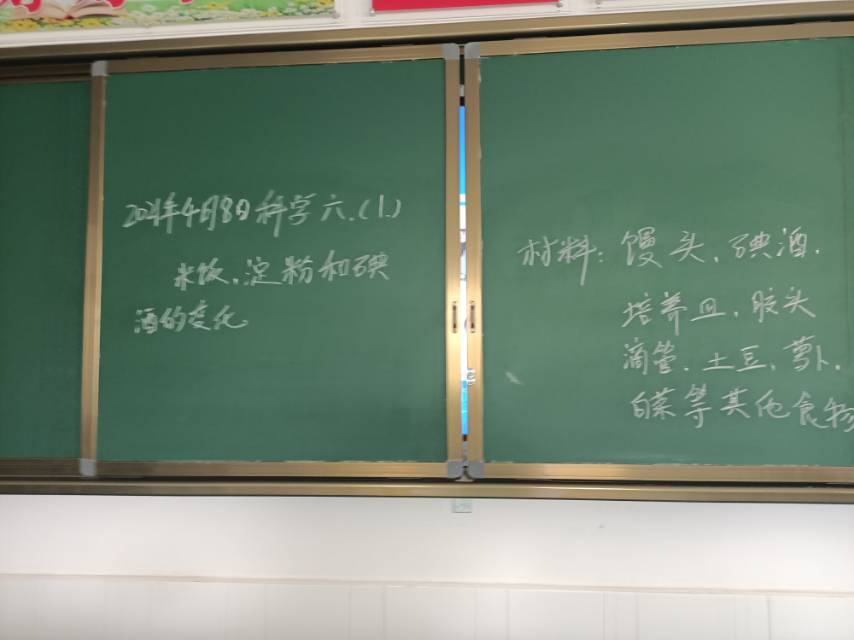 2021年4月8日科学六.(1.)
米饭、淀粉和碘
酒的变化
材料：馒头、碘酒.
培养皿、胶头
滴管、土豆、萝卜.
白菜等其他食物